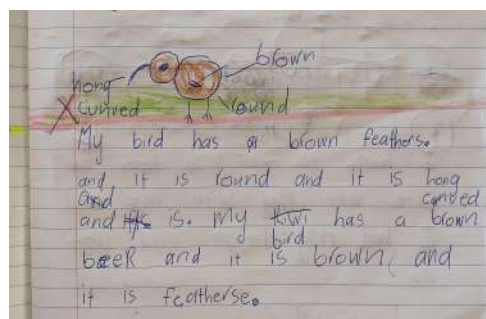 brown
hong
cunved
round
My bird has a brown feathers.
and it is round and it is hong
and cunved
and is. My bird has a brown
beeR and it is brown, and
it is featherse.